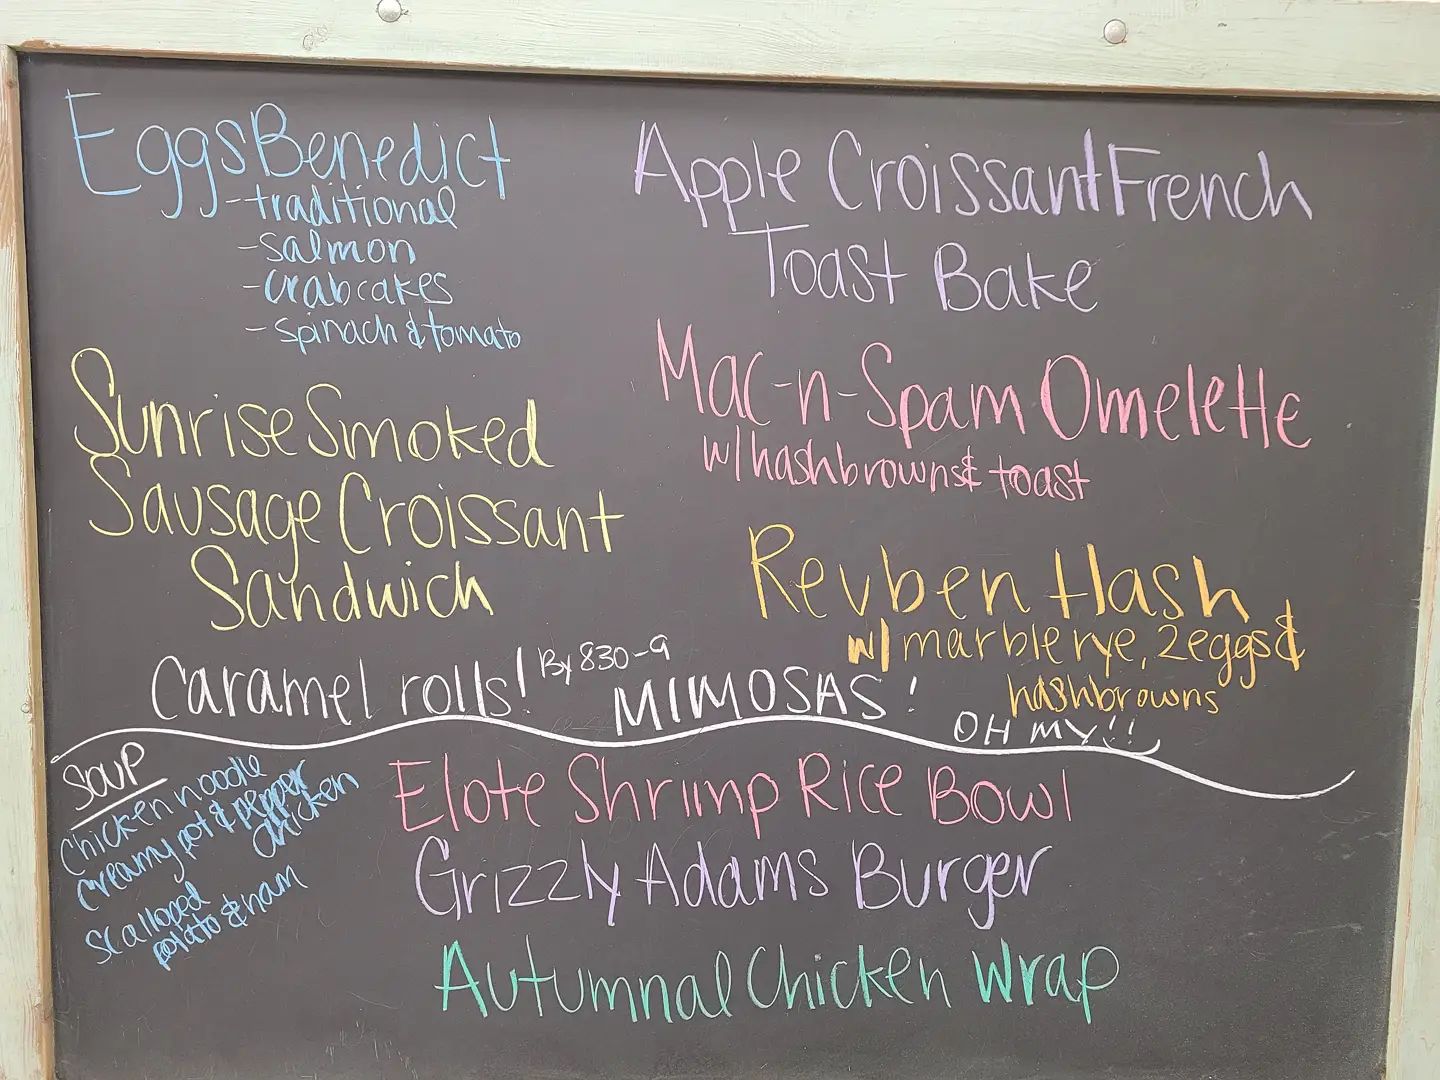 Eggs Benedict
-traditional
-salmon
-crabcakes
-spinach & tomato
Sunrise Smoked
Sausage Croissant
Sandwich
Apple Croissant French
Toast Bake
Mac-n-Spam Omelette
w/ hashbrowns & toast
Reuben Hash
w/ marble rye, 2 eggs &
hashbrowns
Caramel rolls! By 830-9
MIMOSAS!
OH MY!!
Soup
Chicken noodle
Creamy pot & pepper
chicken
Scalloped
potato & ham
Elote Shrimp Rice Bowl
Grizzly Adams Burger
Autumnal Chicken Wrap